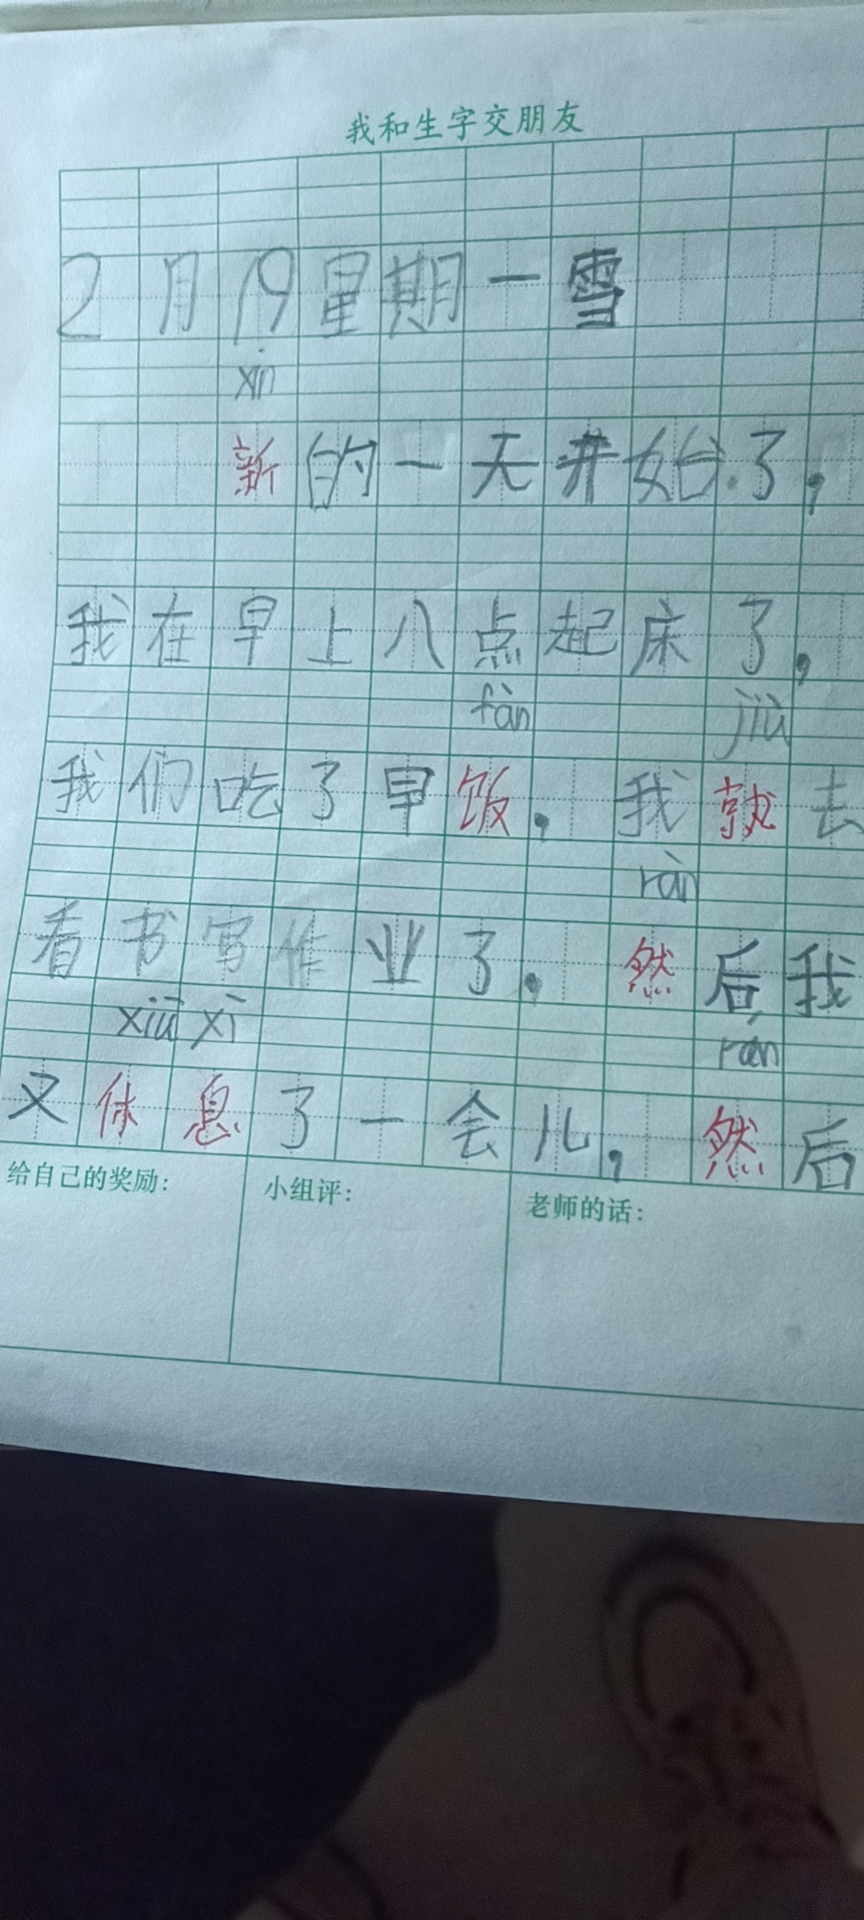 我和生字交朋友
2月19星期一雪
xīn
新的一天开始了，
我在早上八点起床了，
fàn jiù
我们吃了早饭。我就去
rán
看书写作业了。然后我
xiū xī rán
又休息了一会儿，然后
给自己的奖励： 小组评： 老师的话：